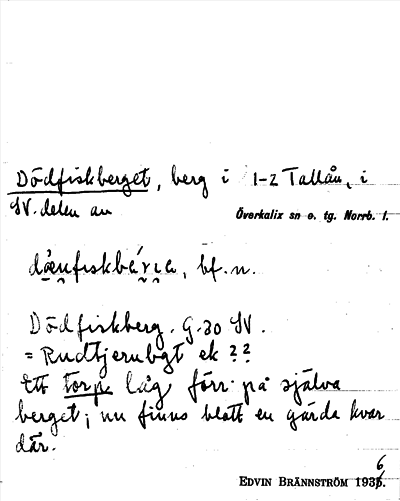 Dödfiskberget, berg i 1-2 Tallån, i
SV. delen av
Överkalix sn o. tg. Norrb. l.
bf. n.
Dödfiskberg. G.30 SV.
= Rudtjernbgt ek ??
Ett torp låg förr på själva
berget; nu finns blott en gärda kvar
där.
EDVIN BRÄNNSTRÖM 1936.